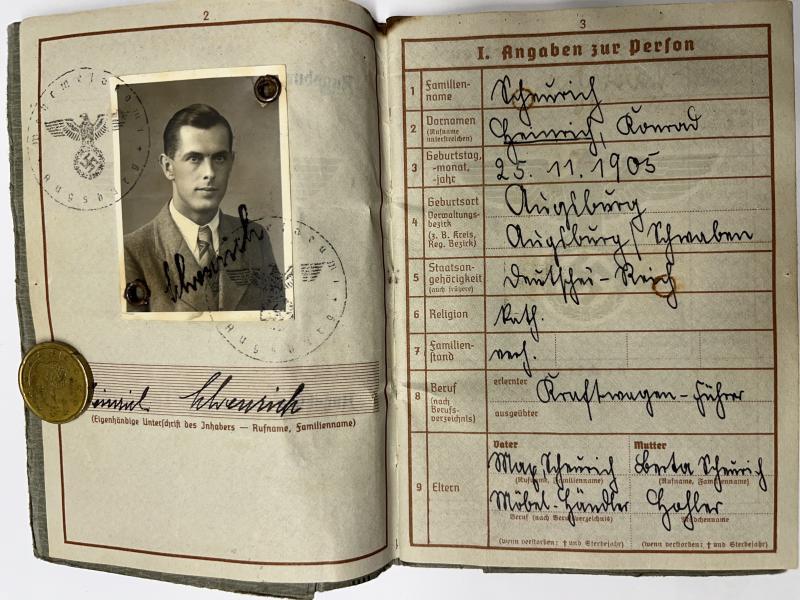 2
Scheurich
Heinrich Scheurich
(Eigenhändige Unterschrift des Inhabers — Rufname, Familienname)
3
I. Angaben zur Person
1 Familienname Scheurich
2 Vornamen (Rufname unterstreichen) Heinrich, Konrad
3 Geburtstag, -monat, -jahr 25. 11. 1905
4 Geburtsort Augsburg
Verwaltungsbezirk (z. B. Kreis, Reg. Bezirk) Augsburg/Schwaben
5 Staatsangehörigkeit (auch frühere) Deutsches-Reich
6 Religion kath.
7 Familienstand verh.
8 Beruf (nach Berufsverzeichnis) erlernter Kraftwagen-Führer
ausgeübter
9 Eltern
Vater Mutter
Max, Scheurich Berta Scheurich
(Rufname, Familienname) (Rufname, Familienname)
Möbel-Händler
Beruf (nach Berufsverzeichnis) Mädchenname
(wenn verstorben: † und Sterbejahr) (wenn verstorben: † und Sterbejahr)